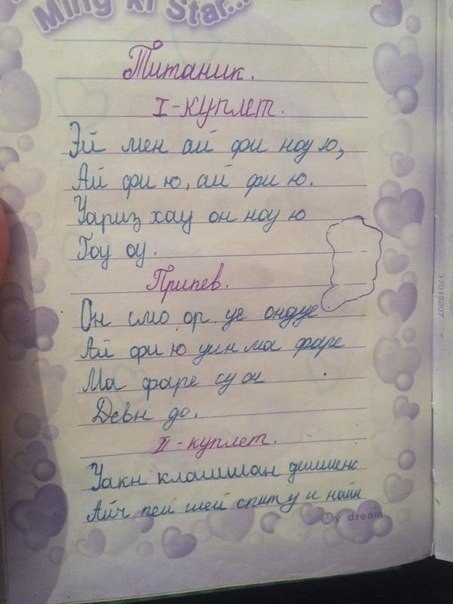 Ming xi Star...
Титаник.
I-куплет.
Эй мен ай фи ноу ю,
Ай фи ю, ай фи ю.
Уариз хау он ноу ю
Гоу оу.
Припев.
Он смо ор уе ондуе
Ай фи ю уин ма фаре
Ма фаре су он
Девн до.
II-куплет.
Уакн клашшан
Айч пей шей спиту и найн
My dream
17018207